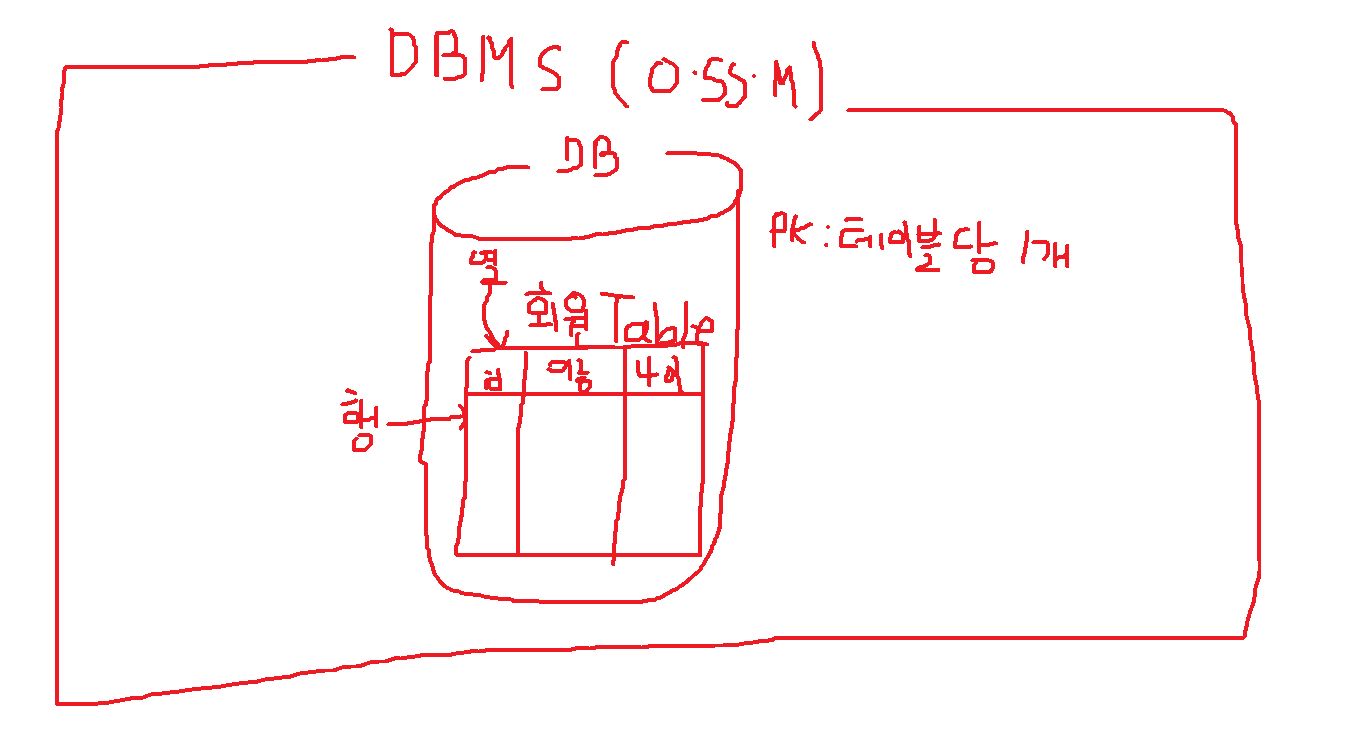 DBMS (O.SS.M)
DB
PK : 테이블당 1개
열
회원 Table
이름
나이
행